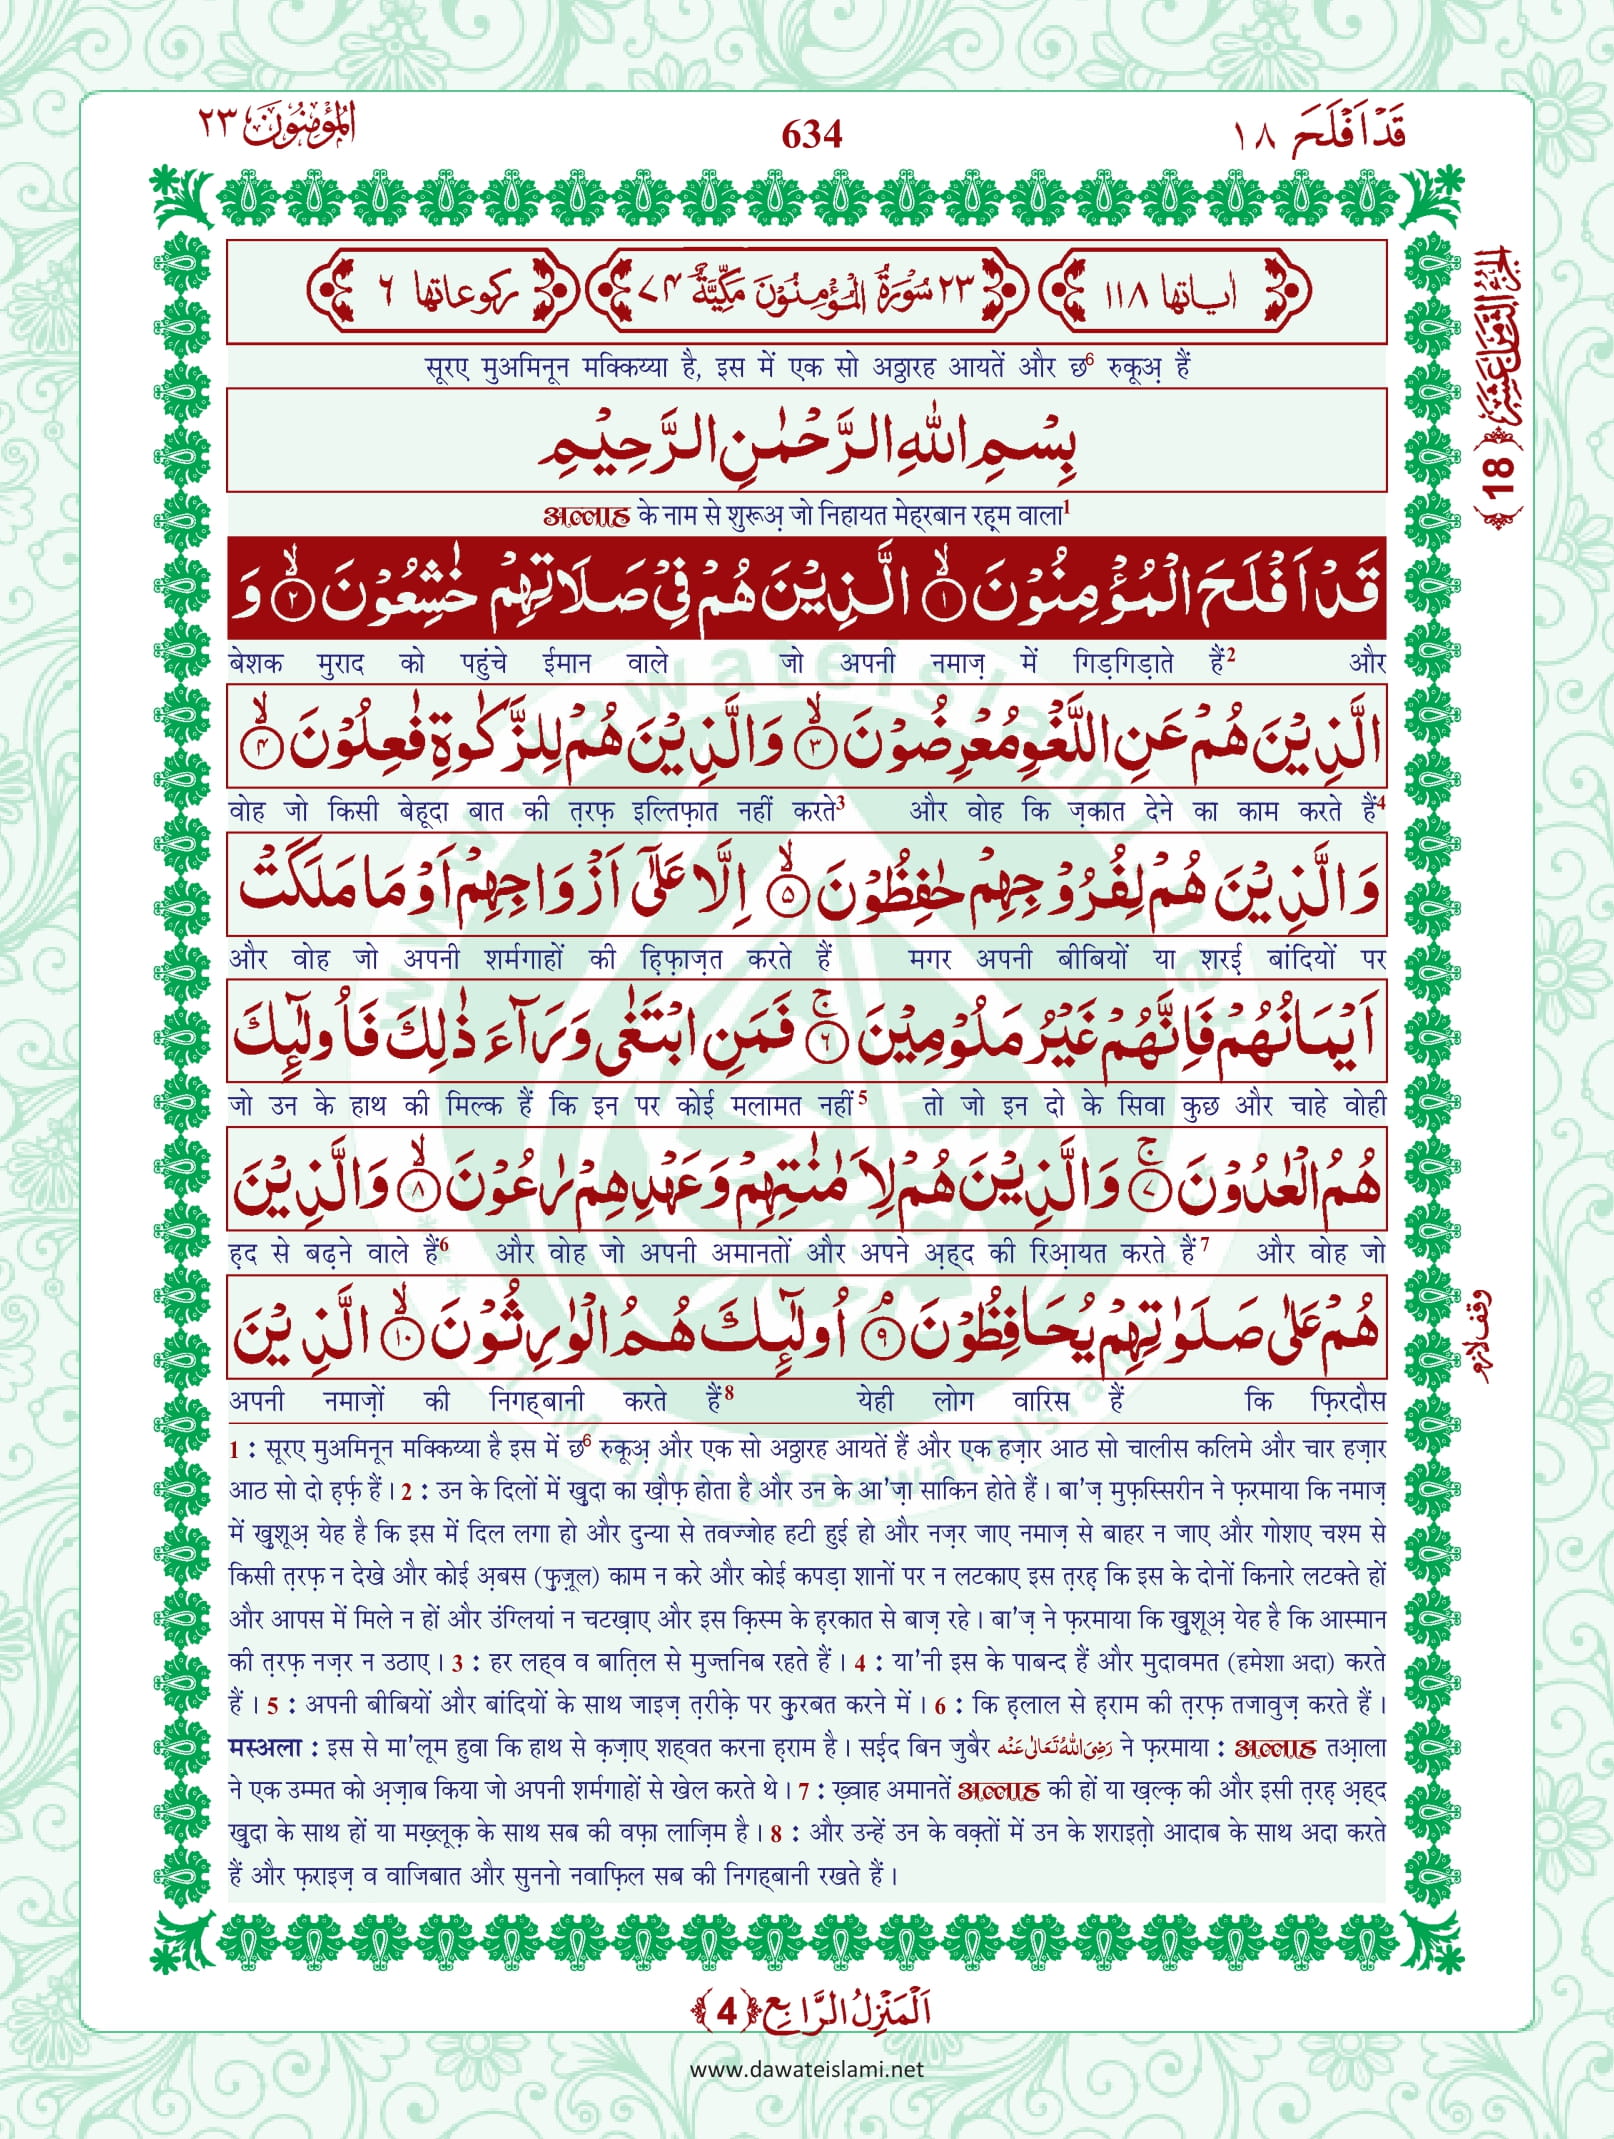 قَدْ اَفْلَحَ ١٨
634
الْمُؤْمِنُوْن ٢٣
اٰیاتها ١١٨
٢٣ سُوْرَةُ الْمُؤْمِنُوْنَ مَكِّيَّةٌ ٧٤
ركوعاتها ٦
सूरए मुअमिनून मक्किय्या है, इस में एक सो अठ्ठारह आयतें और छ6 रुकूअ़ हैं
بِسْمِ اللّٰهِ الرَّحْمٰنِ الرَّحِیْمِ
अल्लाह के नाम से शुरूअ़ जो निहायत मेह्रबान रह़्म वाला1
قَدْ اَفْلَحَ الْمُؤْمِنُوْنَۙ(۱) الَّذِیْنَ هُمْ فِیْ صَلَاتِهِمْ خٰشِعُوْنَۙ(۲) وَ
बेशक मुराद को पहुंचे ईमान वाले जो अपनी नमाज़ में गिड़गिड़ाते हैं2 और
الَّذِیْنَ هُمْ عَنِ اللَّغْوِ مُعْرِضُوْنَۙ(۳) وَ الَّذِیْنَ هُمْ لِلزَّكٰوةِ فٰعِلُوْنَۙ(۴)
वोह जो किसी बेहूदा बात की त़रफ़ इल्तिफ़ात नहीं करते3 और वोह कि ज़कात देने का काम करते हैं4
وَ الَّذِیْنَ هُمْ لِفُرُوْجِهِمْ حٰفِظُوْنَۙ(۵) اِلَّا عَلٰۤى اَزْوَاجِهِمْ اَوْ مَا مَلَكَتْ
और वोह जो अपनी शर्मगाहों की ह़िफ़ाज़त करते हैं मगर अपनी बीबियों या शरई बांदियों पर
اَیْمَانُهُمْ فَاِنَّهُمْ غَیْرُ مَلُوْمِیْنَۚ(۶) فَمَنِ ابْتَغٰى وَرَآءَ ذٰلِكَ فَاُولٰٓىٕكَ
जो उन के हाथ की मिल्क हैं कि इन पर कोई मलामत नहीं5 तो जो इन दो के सिवा कुछ और चाहे वोही
هُمُ الْعٰدُوْنَۚ(۷) وَ الَّذِیْنَ هُمْ لِاَمٰنٰتِهِمْ وَ عَهْدِهِمْ رٰعُوْنَۙ(۸) وَ الَّذِیْنَ
ह़द से बढ़ने वाले हैं6 और वोह जो अपनी अमानतों और अपने अ़ह्द की रिआ़यत करते हैं7 और वोह जो
هُمْ عَلٰى صَلَوٰتِهِمْ یُحَافِظُوْنَۘ(۹) اُولٰٓىٕكَ هُمُ الْوٰرِثُوْنَۙ(۱۰) الَّذِیْنَ
अपनी नमाज़ों की निगह्बानी करते हैं8 येही लोग वारिस हैं कि फ़िरदौस
1 : सूरए मुअमिनून मक्किय्या है इस में छ6 रुकूअ़ और एक सो अठ्ठारह आयतें हैं और एक हज़ार आठ सो चालीस कलिमे और चार हज़ार
आठ सो दो ह़र्फ़ हैं। 2 : उन के दिलों में ख़ुदा का ख़ौफ़ होता है और उन के आ'ज़ा साकिन होते हैं। बा'ज़ मुफ़स्सिरीन ने फ़रमाया कि नमाज़
में ख़ुशूअ़ येह है कि इस में दिल लगा हो और दुन्या से तवज्जोह हटी हुई हो और नज़र जाए नमाज़ से बाहर न जाए और गोशए चश्म से
किसी त़रफ़ न देखे और कोई अ़बस (फ़ुज़ूल) काम न करे और कोई कपड़ा शानों पर न लटकाए इस त़रह़ कि इस के दोनों किनारे लटक्ते हों
और आपस में मिले न हों और उंग्लियां न चटख़ाए और इस क़िस्म के ह़रकात से बाज़ रहे। बा'ज़ ने फ़रमाया कि ख़ुशूअ़ येह है कि आस्मान
की त़रफ़ नज़र न उठाए। 3 : हर लह्व व बात़िल से मुज्तनिब रहते हैं। 4 : या'नी इस के पाबन्द हैं और मुदावमत (हमेशा अदा) करते
हैं। 5 : अपनी बीबियों और बांदियों के साथ जाइज़ त़रीक़े पर क़ुरबत करने में। 6 : कि ह़लाल से ह़राम की त़रफ़ तजावुज़ करते हैं।
मस्अला : इस से मा'लूम हुवा कि हाथ से क़ज़ाए शह्वत करना ह़राम है। सईद बिन जुबैर رَضِیَ اللّٰهُ تَعَالٰی عَنْه ने फ़रमाया : अल्लाह तआ़ला
ने एक उम्मत को अ़ज़ाब किया जो अपनी शर्मगाहों से खेल करते थे। 7 : ख़्वाह अमानतें अल्लाह की हों या ख़ल्क़ की और इसी त़रह़ अ़ह्द
ख़ुदा के साथ हों या मख़्लूक़ के साथ सब की वफ़ा लाज़िम है। 8 : और उन्हें उन के वक़्तों में उन के शराइत़ो आदाब के साथ अदा करते
हैं और फ़राइज़ व वाजिबात और सुननो नवाफ़िल सब की निगह्बानी रखते हैं।
18
وقف لازم
اَلْمَنْزِلُ الرَّابِع ﴿4﴾
www.dawateislami.net